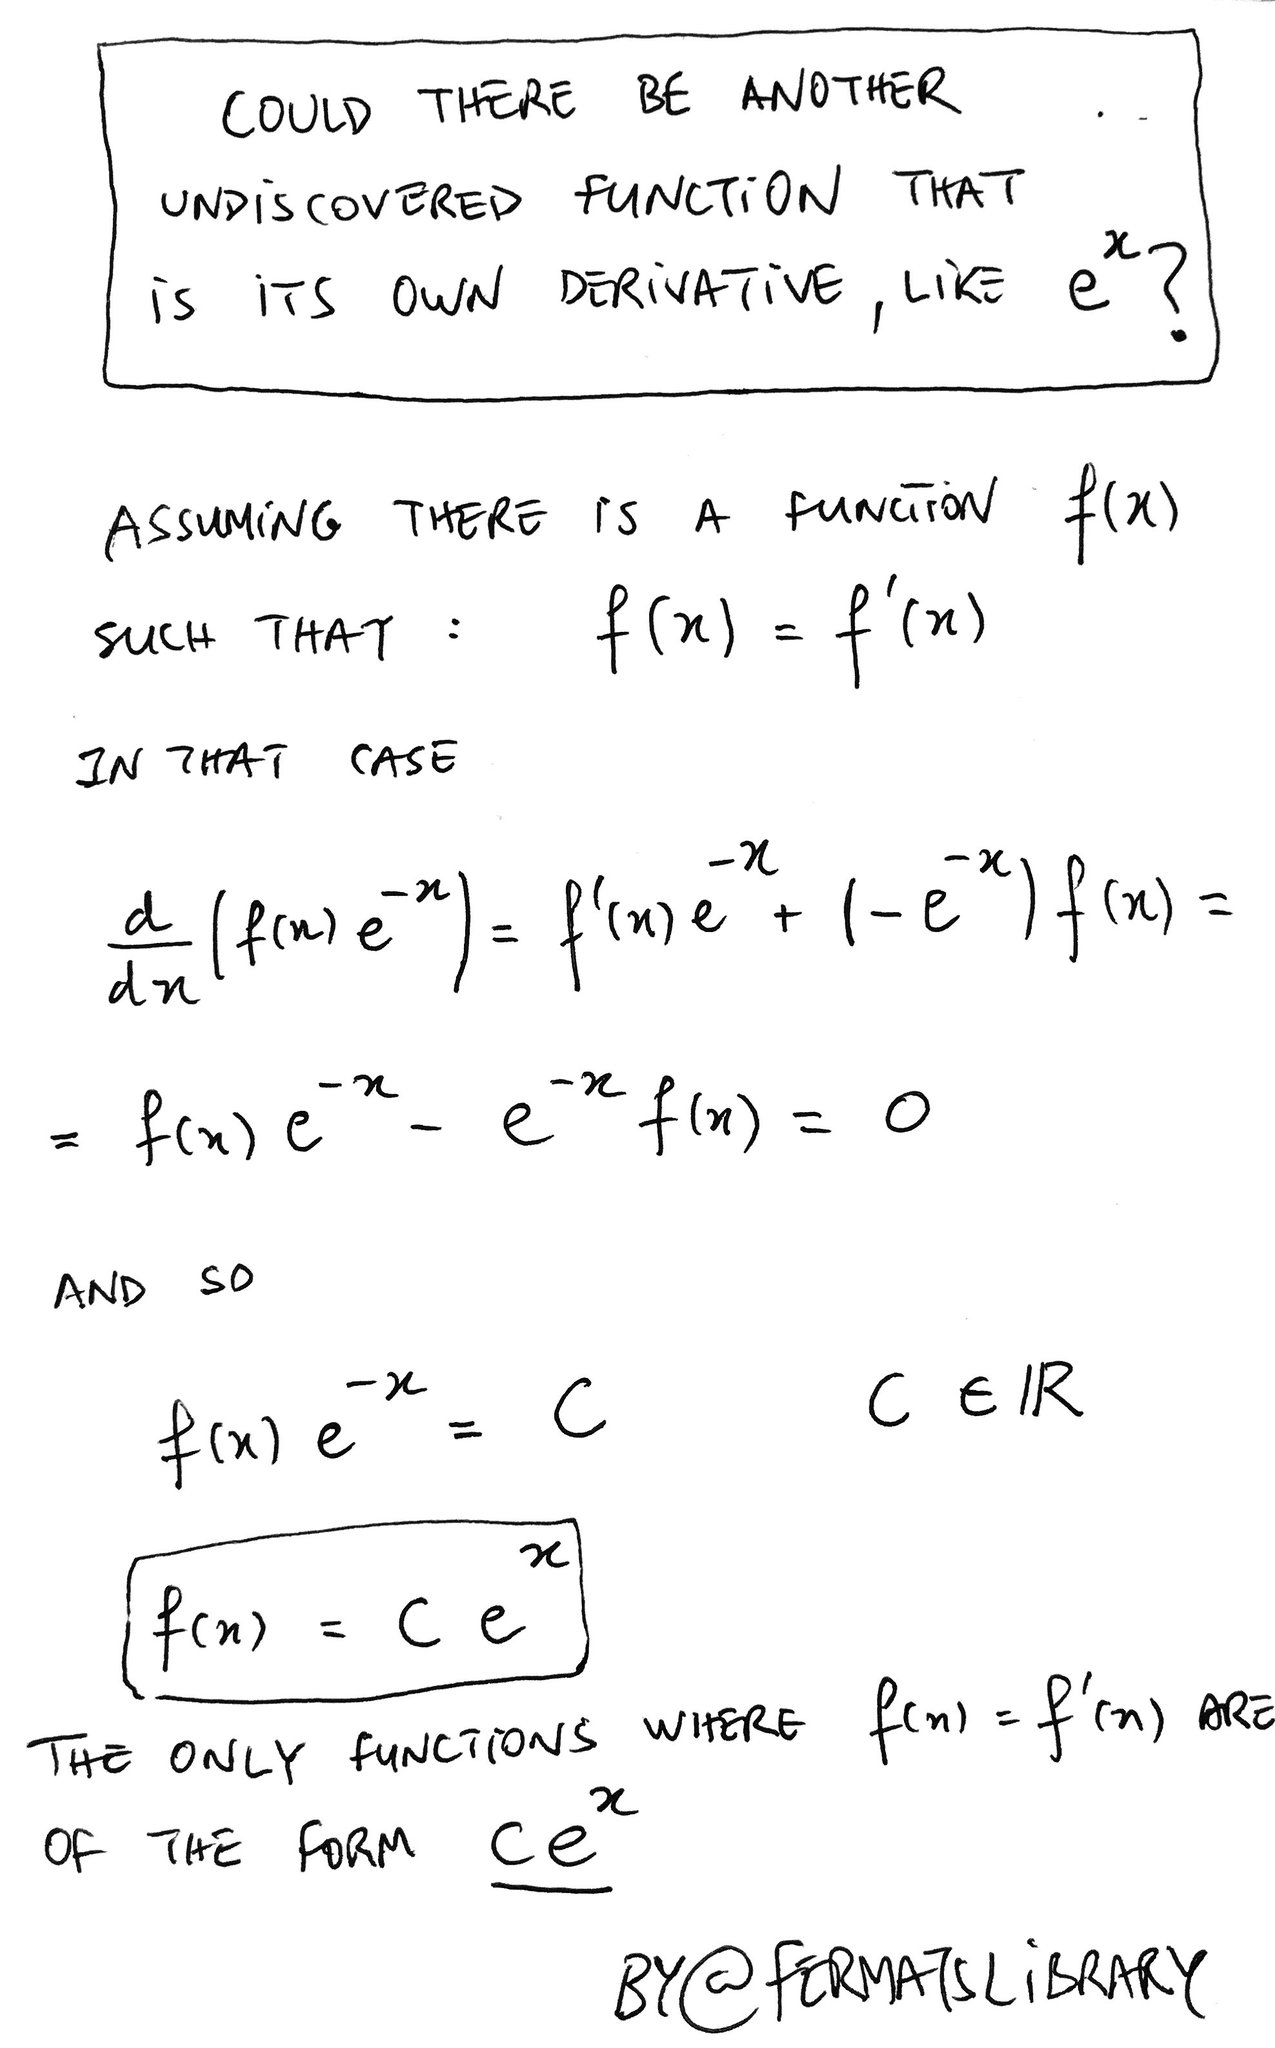 COULD THERE BE ANOTHER
UNDISCOVERED FUNCTION THAT
IS ITS OWN DERIVATIVE, LIKE e^x?
ASSUMING THERE IS A FUNCTION f(x)
SUCH THAT : f(x) = f'(x)
IN THAT CASE
d/dx (f(x) e^-x) = f'(x) e^-x + (-e^-x) f(x) =
= f(x) e^-x - e^-x f(x) = 0
AND SO
f(x) e^-x = C C ∈ ℝ
f(x) = C e^x
THE ONLY FUNCTIONS WHERE f(x) = f'(x) ARE
OF THE FORM C e^x
BY @FERMATSLIBRARY